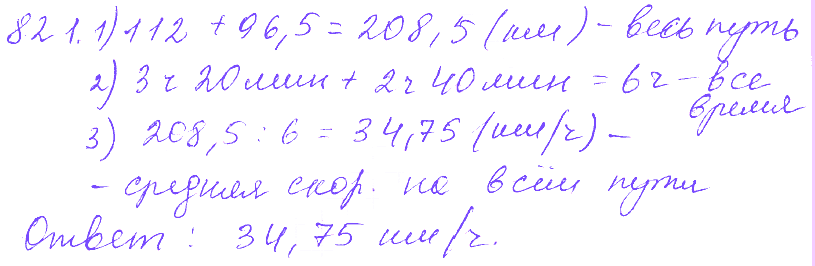 821. 1) 112 + 96,5 = 208,5 (км) - весь путь
2) 3 ч 20 мин + 2 ч 40 мин = 6 ч - все
время
3) 208,5 : 6 = 34,75 (км/ч) -
- средняя скор. на всём пути
Ответ : 34,75 км/ч.